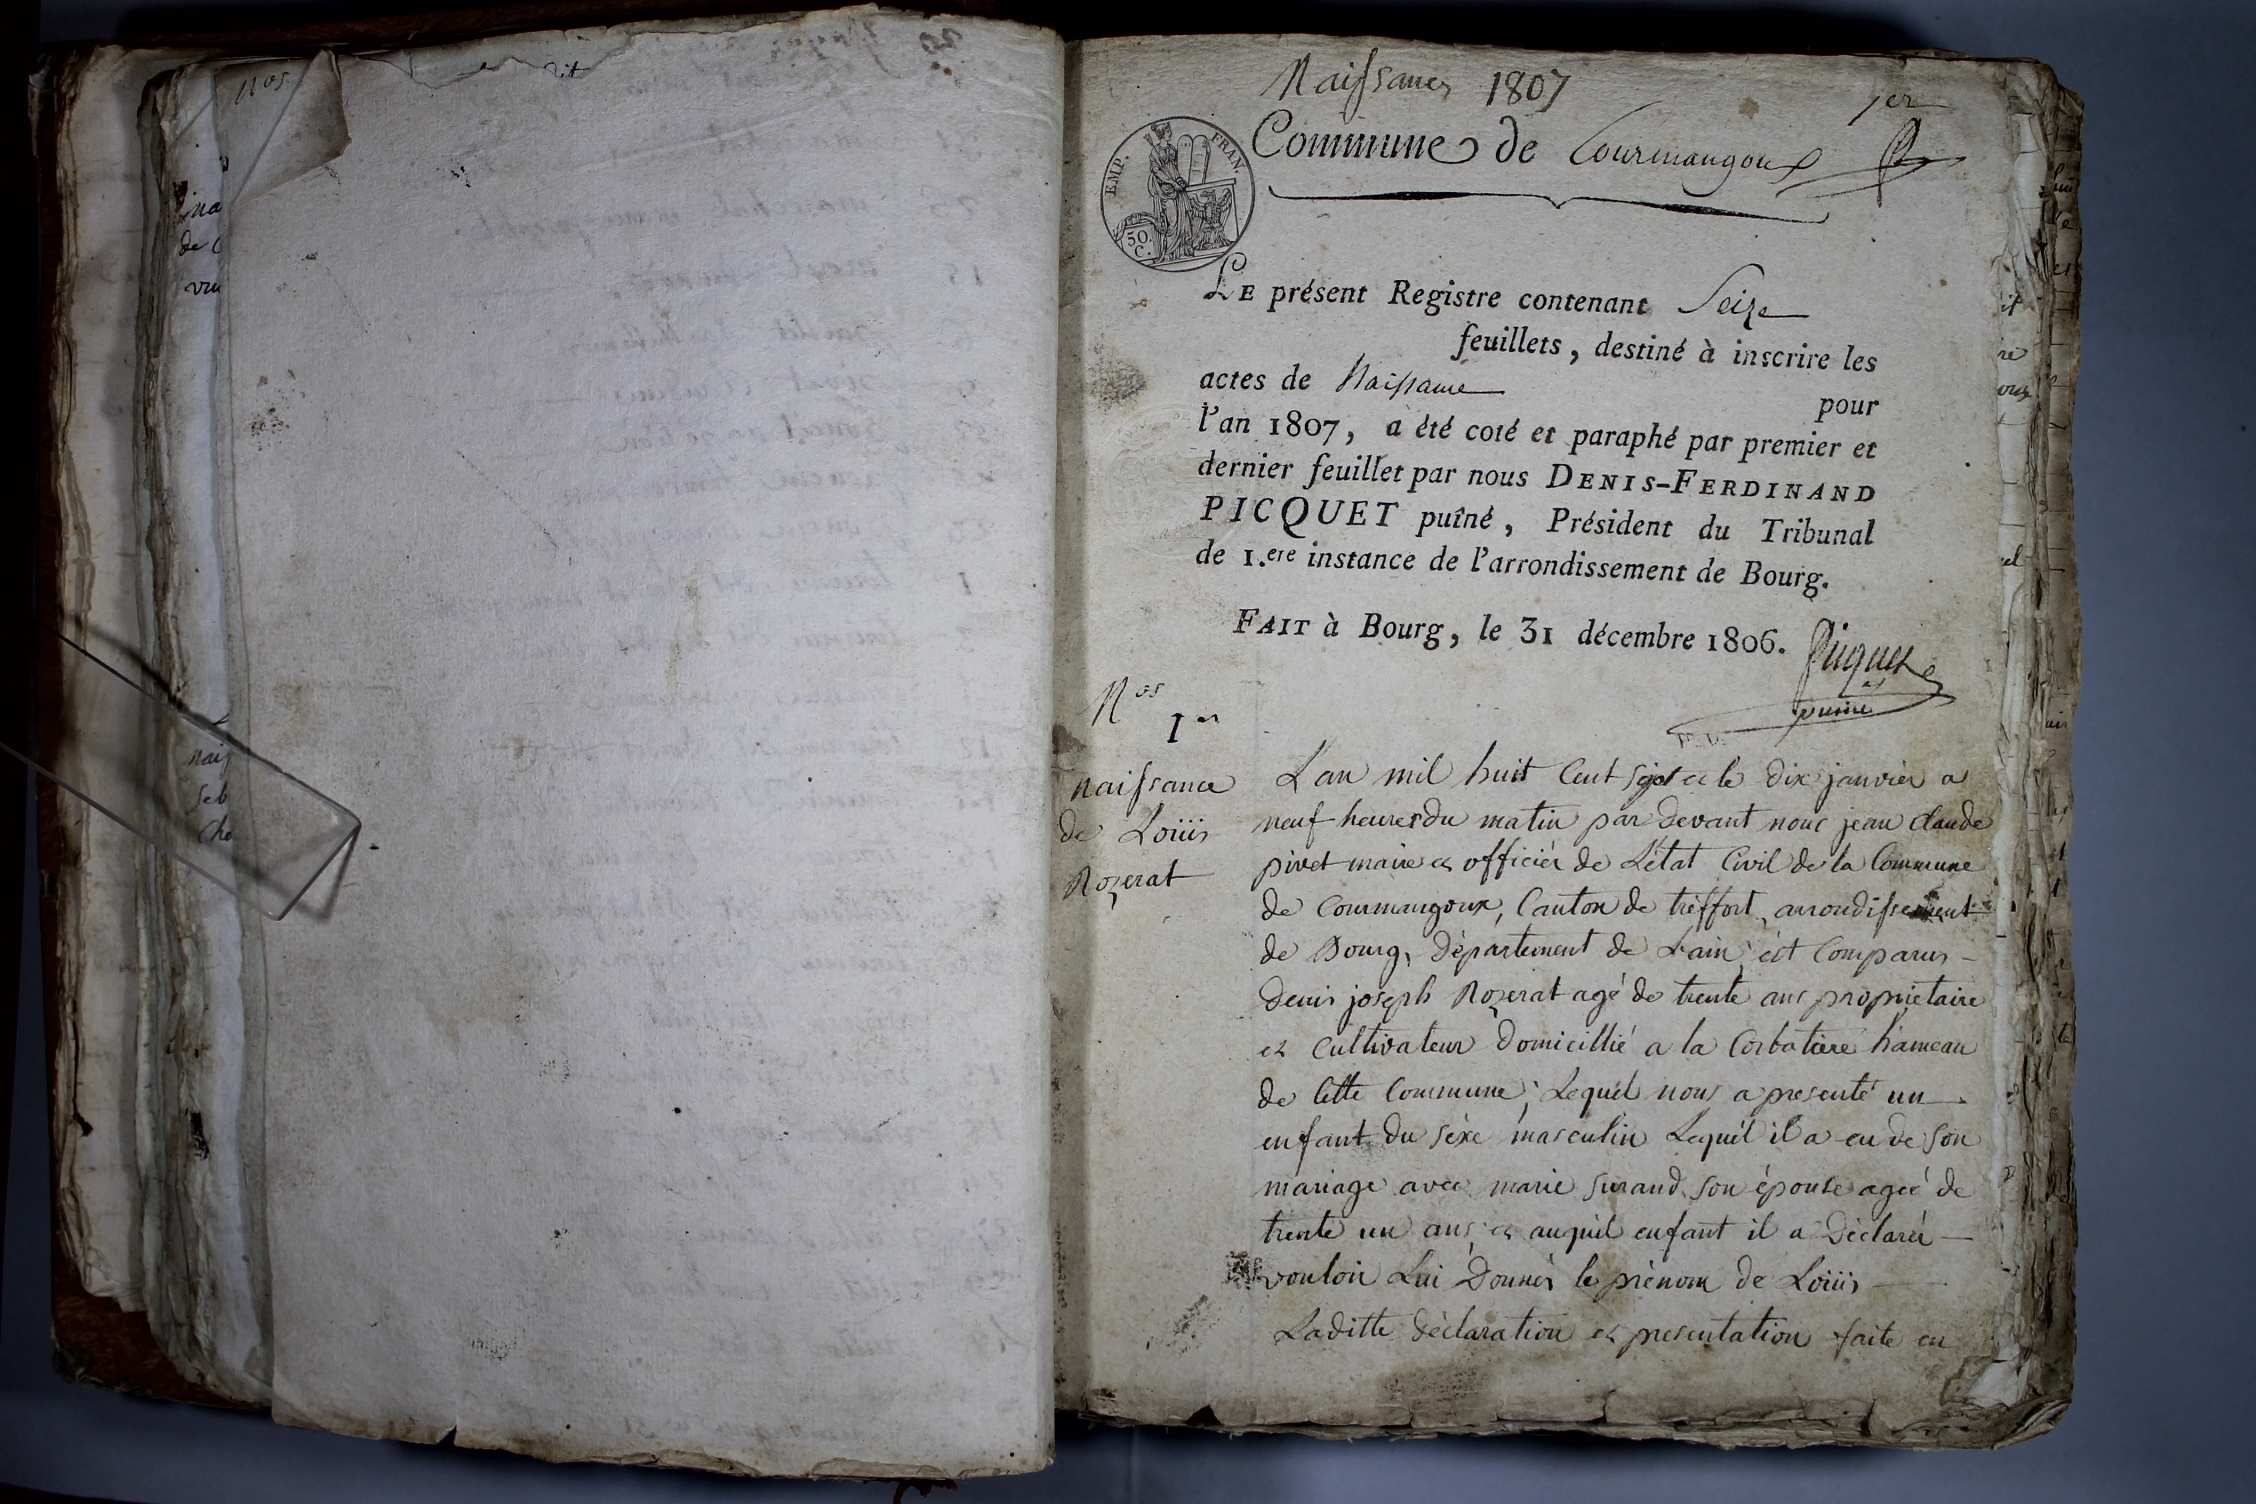 Nos
Naissances 1807
1er
Commune de Courmangoux
EMP. FRAN.
50.
C.
LE présent Registre contenant Seize
feuillets, destiné à inscrire les
actes de Naissance
pour
l'an 1807, a été coté et paraphé par premier et
dernier feuillet par nous DENIS-FERDINAND
PICQUET puîné, Président du Tribunal
de 1.ere instance de l'arrondissement de Bourg.
FAIT à Bourg, le 31 décembre 1806.
Picquet
puiné
Nos
1er
naissance
de Loüis
Rozerat
L'an mil huit Cent sept et le dix janvier a
neuf heures du matin par devant nous jean Claude
pivet maire et officièr de L'état Civil de la Commune
de Courmangoux, Canton de trèffort, arrondissement
de Bourg, Dèpartement de L'ain, èst Comparus
denis joseph Rozerat agé de trente ans propriètaire
et Cultivateur Domicillié a la Corbatiere hameau
de Cette Commune, Lequèl nous a presenté un
enfant du sèxe masculin Lequèl il a eu de son
mariage avec marie surand son épouse ageé de
trente un ans, et auquèl enfant il a Dèclarèr
vouloir Lui Donnèr le prènom de Loüis
Laditte dèclaration et presentation faite en